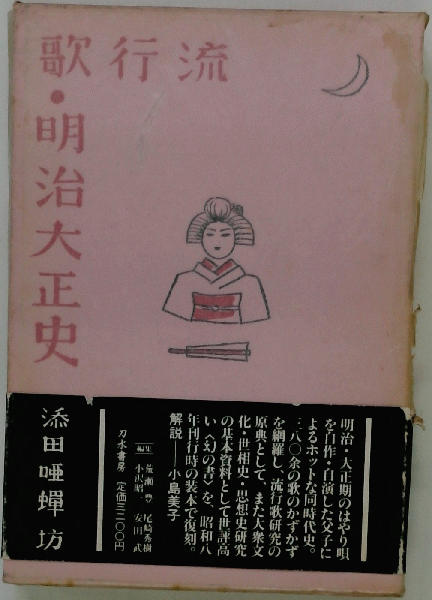 流行歌・明治大正史
明治・大正期のはやり唄
を自作・自演した父子に
よるホットな同時代史。
三八〇余の歌のかずかず
を網羅し、流行歌研究の
原典として、また大衆文
化・世相史・思想史研究
の基本資料として世評高
い〈幻の書〉を、昭和八
年刊行時の装本で復刻。
解説――小島美子
編集
荒瀬豊 尾崎秀樹
小沢昭一 安田武
刀水書房 定価三二〇〇円
添田唖蟬坊